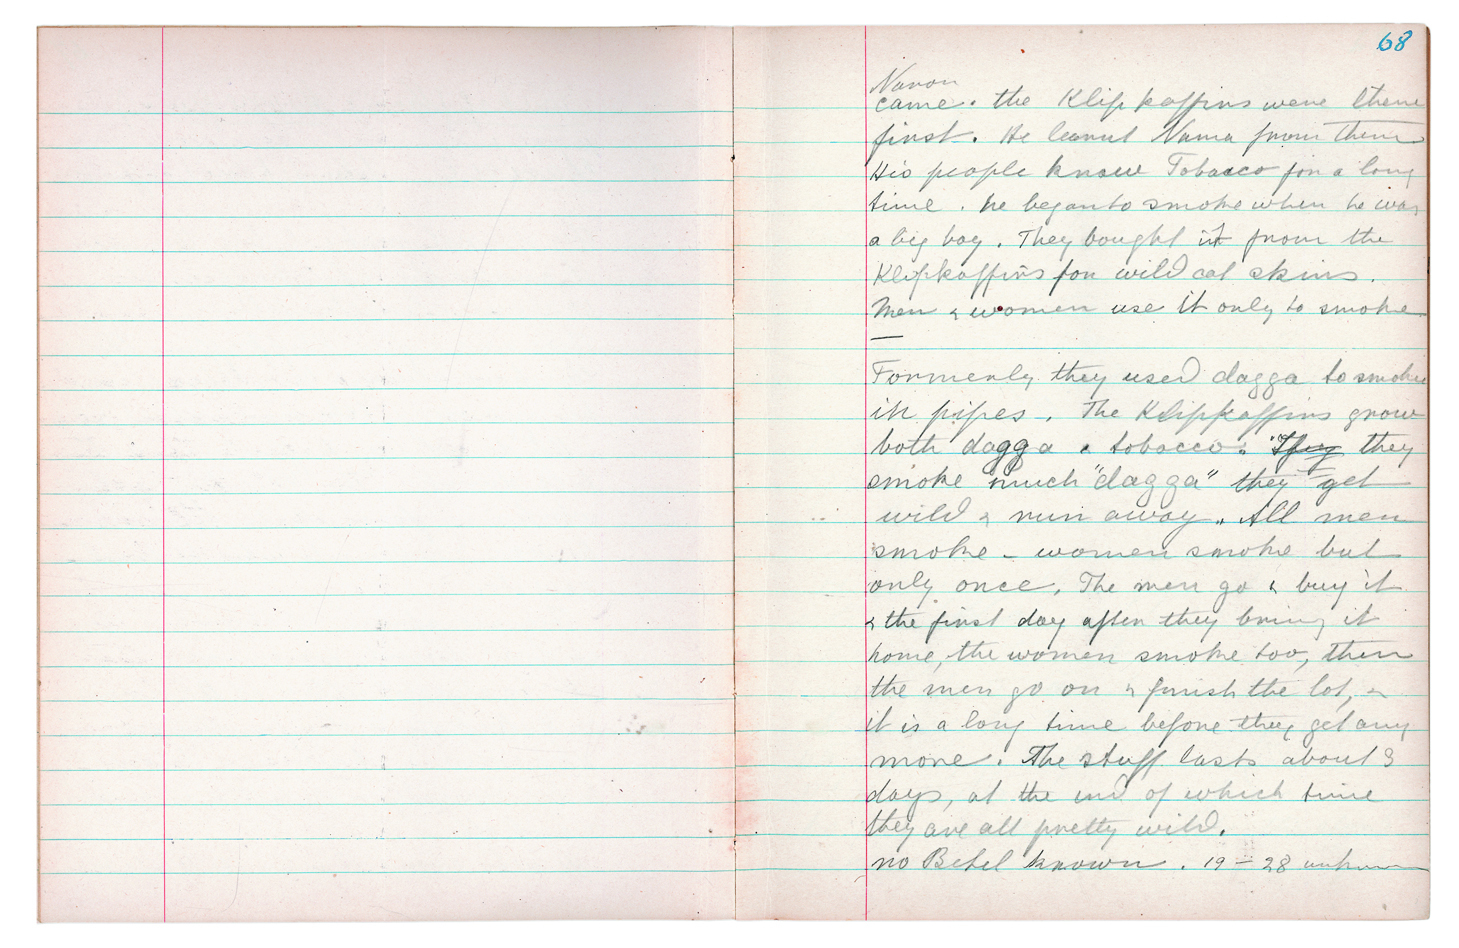 68
Naron
came. the Klipkaffirs were there
first. He learnt Nama from them
His people knew Tobacco for a long
time. he began to smoke when he was
a big boy. They bought it from the
Klipkaffirs for wild cat skins.
Men & women use it only to smoke
—
Formerly they used dagga to smoke
in pipes. The Klippkaffirs grow
both dagga & tobacco. They they
smoke much "dagga" they get
wild & run away. All men
smoke - women smoke but
only once. The men go & buy it
& the first day after they bring it
home, the women smoke too, then
the men go on & finish the lot, &
it is a long time before they get any
more. The stuff lasts about 3
days, at the end of which time
they are all pretty wild.
no Betel known. 19 - 28 unknown